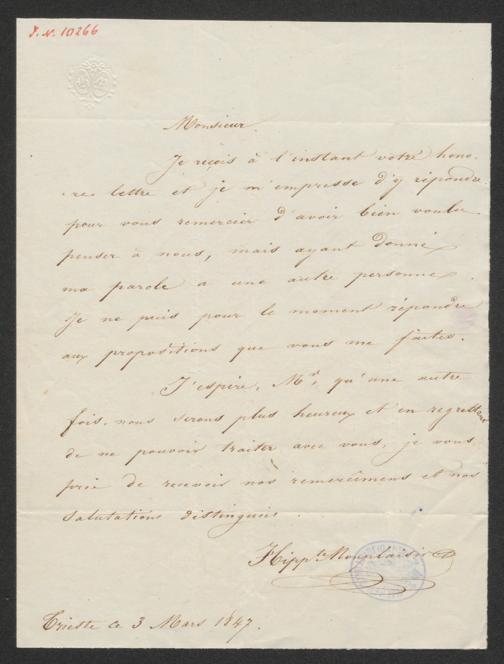 J. N. 10266
Monsieur.
Je reçois à l'instant votre hono-
-rée lettre et je m'empresse d'y répondre
pour vous remercier d'avoir bien voulu
penser à nous, mais ayant donné
ma parole a une autre personne
Je ne puis pour le moment répondre
aux propositions que vous me faites.
J'espère, Mr, qu'une autre
fois nous serons plus heureux et en regrettant
de ne pouvoir traiter avec vous, je vous
prie de recevoir nos remercîmens et nos
salutations distingués.
Hippte Monplaisir
Trieste ce 3 Mars 1847.